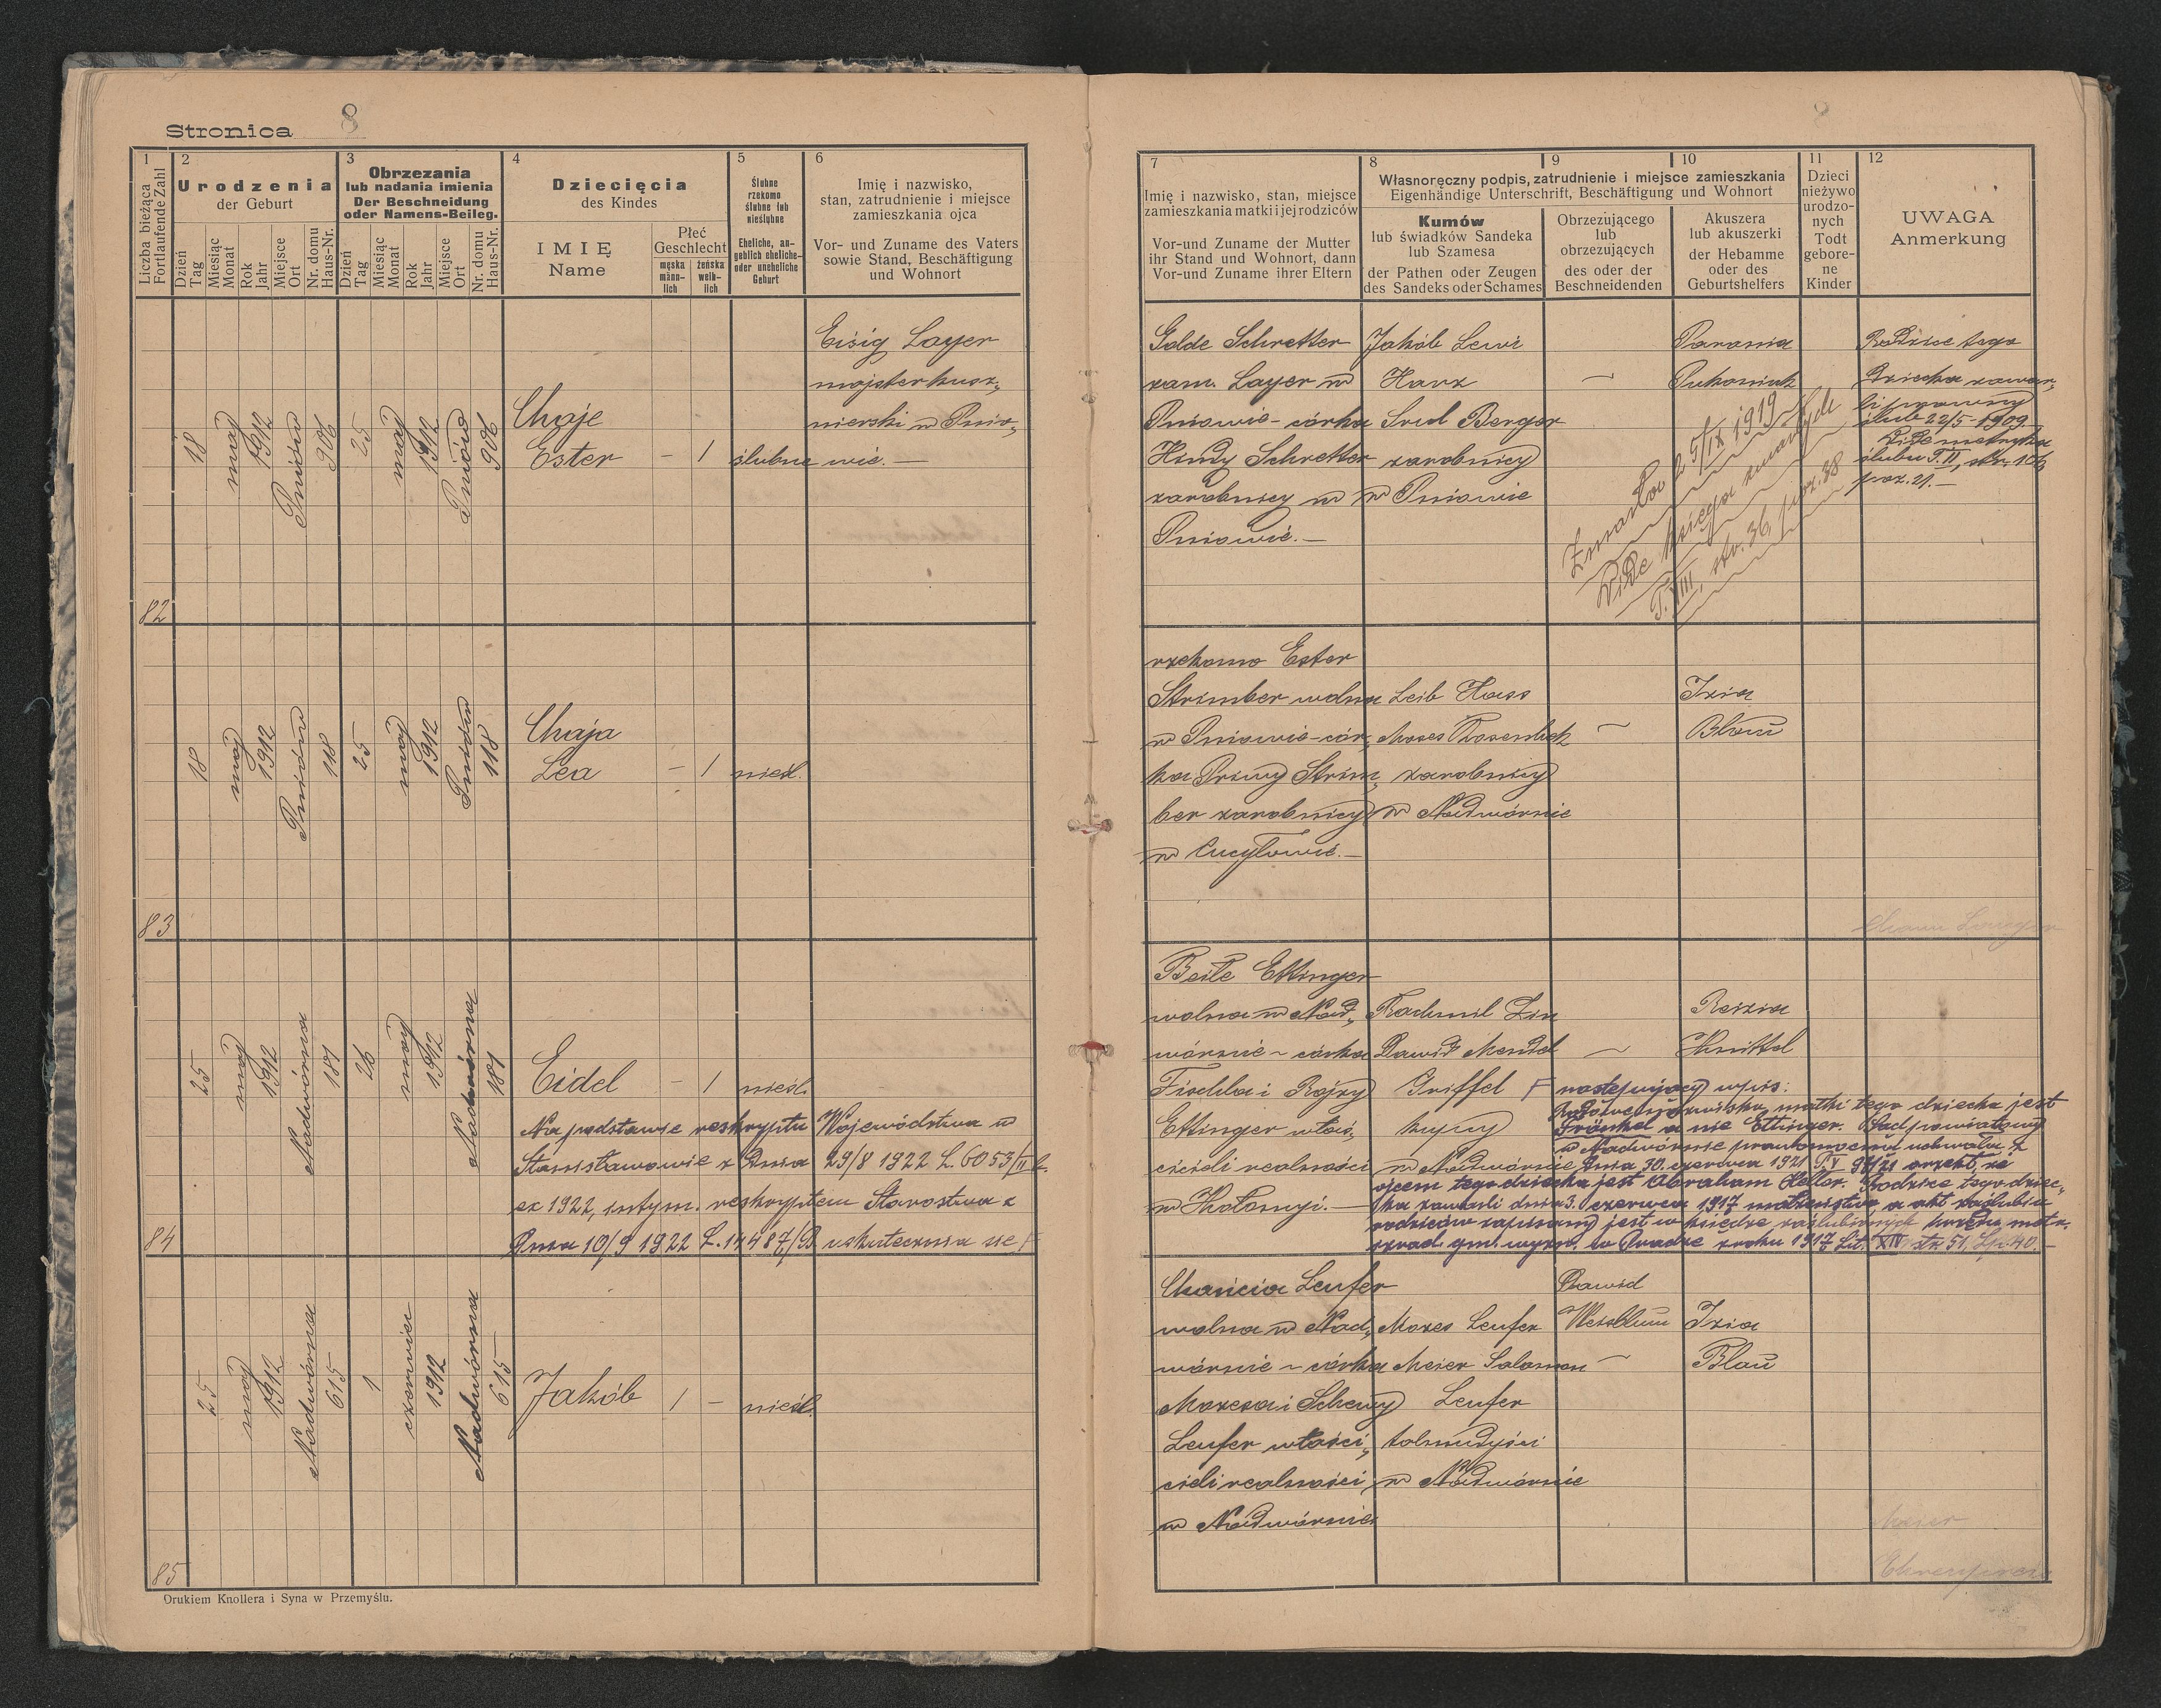 Stronica 8
1
Liczba bieżąca
Fortlaufende Zahl
2
Urodzenia
der Geburt
Dzień
Tag
Miesiąc
Monat
Rok
Jahr
Miejsce
Ort
Nr. domu
Haus-Nr.
3
Obrzezania
lub nadania imienia
Der Beschneidung
oder Namens-Beileg.
Dzień
Tag
Miesiąc
Monat
Rok
Jahr
Miejsce
Ort
Nr. domu
Haus-Nr.
4
Dziecięcia
des Kindes
IMIĘ
Name
Płeć
Geschlecht
męska
männ-
lich
żeńska
weib-
lich
5
Ślubne
rzekomo
ślubne lub
nieślubne
Eheliche, an-
geblich eheliche-
oder uneheliche
Geburt
6
Imię i nazwisko,
stan, zatrudnienie i miejsce
zamieszkania ojca
Vor- und Zuname des Vaters
sowie Stand, Beschäftigung
und Wohnort
7
Imię i nazwisko, stan, miejsce
zamieszkania matki i jej rodziców
Vor-und Zuname der Mutter
ihr Stand und Wohnort, dann
Vor-und Zuname ihrer Eltern
8
9
10
Własnoręczny podpis, zatrudnienie i miejsce zamieszkania
Eigenhändige Unterschrift, Beschäftigung und Wohnort
Kumów
lub świadków Sandeka
lub Szamesa
der Pathen oder Zeugen
des Sandeks oder Schames
Obrzezującego
lub
obrzezujących
des oder der
Beschneidenden
Akuszera
lub akuszerki
der Hebamme
oder des
Geburtshelfers
11
Dzieci
nieżywo
urodzo-
nych
Todt
gebore-
ne
Kinder
12
UWAGA
Anmerkung
82
18
maj
1912
Pniów
906
25
maj
1912
Pniów
906
Chaje
Ester
- 1
ślubne
Eisig Layer
majster kusz-
nierski w Pnio-
wie.-
Golde Schretter
zam. Layer w
Pniowie - córka
Hindy Schretter
zarobnicy w
Pniowie.-
Jakób Lewi
Harz
Srul Berger
zarobnicy
w Pniowie
-
Parania
Pukoniuk
Rodzice tego
dziecka zawar-
li prawny
ślub 22/5-1909
Vide metryka
ślubu T.II, str. 106
poz. 21.-
Zmarła 5/IX 1919
Vide księga zmarłych
T.VIII, str. 36, poz. 38
83
18
maj
1912
Pniów
118
25
maj
1912
Pniów
118
Chaja
Lea
- 1
nieśl.
rzekomo Ester
Strimber wolna
w Pniowie-cór-
ka Priwy Strim-
ber zarobnicy
w Cucyłowie.-
Leib Hass
Moses
zarobnicy
w Nadwórnie
-
Izia
Blau
84
25
maj
1912
Nadwórna
181
26
maj
1912
Nadwórna
181
Eidel
- 1
nieśl.
Na podstawie reskryptu Województwa w
Stanisławowie z dnia 29/8 1922 L. 6053/II
ex 1922, intym. reskryptem Starostwa z
dnia 10/9 1922 L. 14487/B uskutecznia się F
Beile Ettinger
wolna w Nad-
wórnie - córka
Fischla i Rojzy
Ettinger właś-
cicieli realności
w Kołomyi.-
Rachmil Zin
Dawid Mendel
Griffel
kupcy
w Nadwórnie
-
Reizia
Knittel
F następujący wpis:
Rodowe nazwisko matki tego dziecka jest
Fränkel a nie Ettinger. Sąd powiatowy
w Nadwórnie prawomocną uchwałą z
dnia 30. czerwca 1921 P.V 97/21 orzekł, że
ojcem tego dziecka jest Abraham Heller. Rodzice tego dziec-
ka zawarli dnia 3. czerwca 1917 małżeństwo a akt zaślubin
rodziców zapisany jest w księdze zaślubionych urzędu metr.
izrael. gm. wyzn. w Pradze z roku 1917 Lit. XIV str. 51, Lp. 40.-
85
25
maj
1912
Nadwórna
615
1
czerwiec
1912
Nadwórna
615
Jakób
1 -
nieśl.
Chancia Leufer
wolna w Nad-
wórnie - córka
Mozesa i Scheiny
Leufer właści-
cieli realności
w Nadwórnie
Mozes Leufer
Meier Salomon
Leufer
talmudyści
w Nadwórnie
Dawid
Weissblum
-
Izia
Blau
Drukiem Knollera i Syna w Przemyślu.